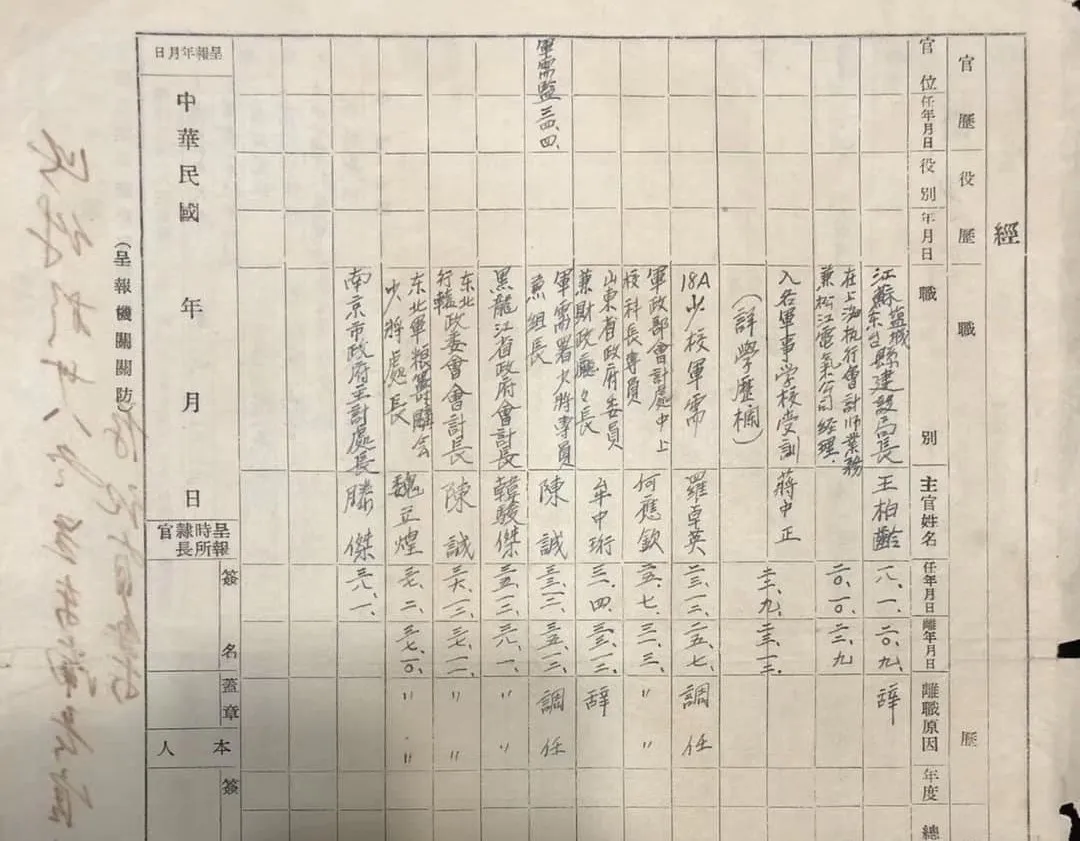 經歷
官歷 役歷 職
官位 任年月日 役別 年月日 職別 主官姓名 任年月日 離年月日 離職原因 年度 總
江蘇鹽城東台縣建設局長 王柏齡 一八、一、 二〇、九、 辞
在上海执行會計師業務兼松江電氣公司経理、 二〇、一〇、 二二、九
入名軍事学校受訓 蔣中正
（詳学歷欄） 二二、九、 二三、一二、
18A少校軍需 羅卓英 二三、一二、 二五、七、 調任
軍政部會計處中上校科長專員 何應欽 二五、七、 三一、三、 〃 〃
山東省政府委員兼財政廳々長 牟中珩 三一、四、 三三、一二、 辞
軍需監 三四、四、 軍需署少將專員兼組長 陳誠 三三、一二、 三五、一二、 調任
黑龍江省政府會計長 韓駿傑 三五、一二、 三八、一、 〃 〃
东北行轅政委會會計長 陳誠 三六、一二、 三七、一二、 〃 〃
东北軍粮籌購會少將處長 魏立煌 三七、二、 三七、一〇、 〃 〃
南京市政府主計處長 滕傑 三八、一、
呈報年月日
中華民國 年 月 日
呈報時所隸長官
簽名蓋章
本人
簽
（呈報機關關防）